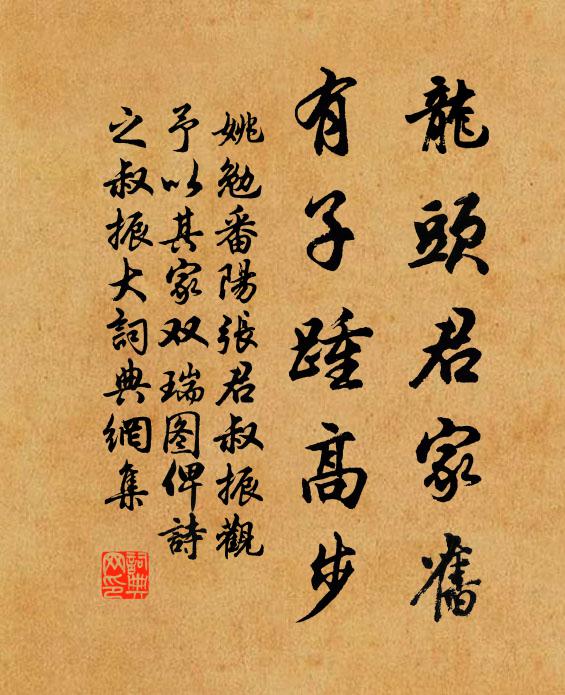 龍頭君家舊
有子踵高步
姚勉番陽張君叔振觀
予以其家双瑞图俾詩
之叔振大詞典網集
詞典网印